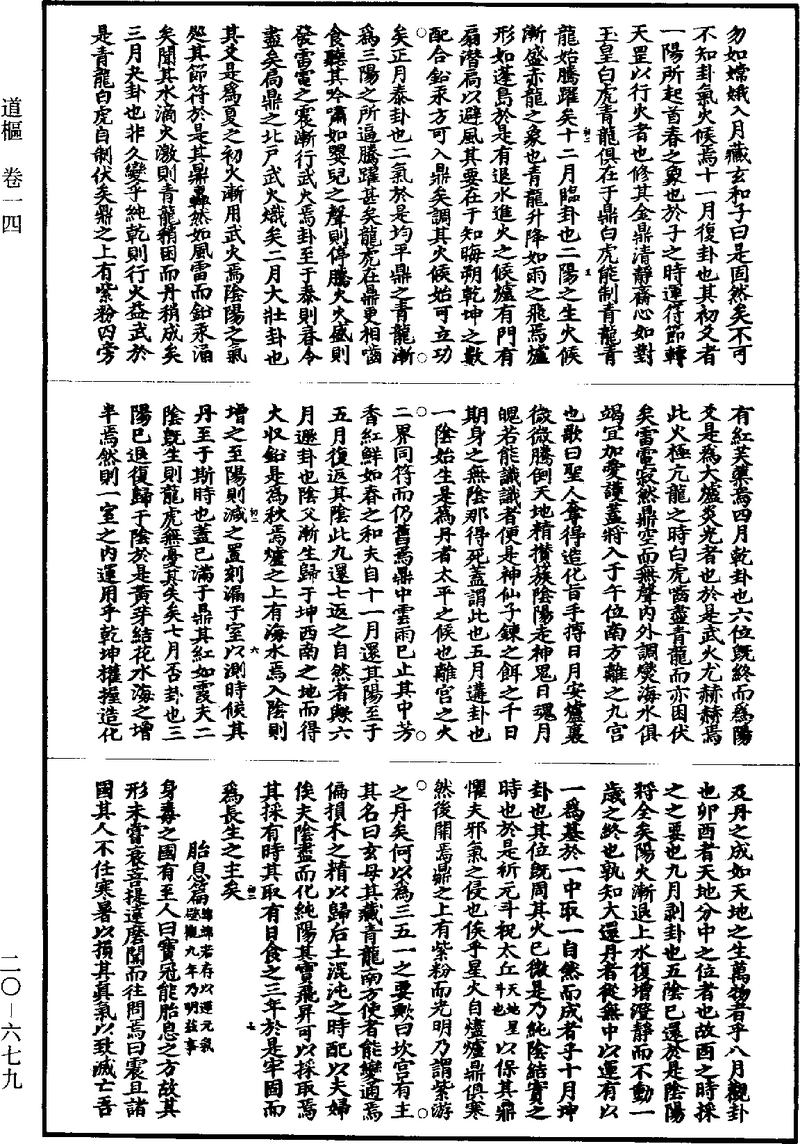 道樞 卷一四
二〇—六七九
勿如嫦娥入月藏玄和子曰是固然矣不可
不知卦氣火候焉十一月復卦也其初爻者
一陽所起首春之象也於子之時運符節轉
天罡以行火者也修其金鼎清靜齋心如對
玉皇白虎青龍俱在于鼎白虎能制青龍青
龍始騰躍矣十二月臨卦也二陽之生火候
漸盛赤龍之象也青龍升降如雨之飛焉爐
形如蓬島於是有退水進火之候爐有門有
扇潛扃以避風其要在于知晦朔乾坤之數
配合鉛汞方可入鼎矣調其火候始可立功
矣正月泰卦也二氣於是均平鼎之青龍漸
爲三陽之所逼騰躍甚矣龍虎在鼎更相啗
食聽其吟嘯如嬰兒之聲則停騰火火盛則
發雷電之震漸行武火焉卦至于泰則春令
盡矣扃鼎之北戶武火熾矣二月大壯卦也
其爻是爲夏之初火漸用武焉陰陽之氣
處其節符於是其鼎轟然如風雷而鉛汞涌
矣聞其水滴火激則青龍稍困而丹稍成矣
三月夬卦也非久變乎純乾則行火益武於
是青龍白虎自制伏矣鼎之上有紫粉四旁
有紅芙蘂焉四月乾卦也六位既終而爲陽
爻是爲大爐炎光者也於是武火尤赫赫焉
此火極亢龍之時白虎啗盡青龍而亦困伏
矣雷電寂然鼎空而無聲內外調燮海水俱
竭宜加愛護蓋將入于午位南方離之九宮
也歌曰聖人奪得造化旨手搏日月安爐裏
微微騰倒天地精攢簇陰陽走神鬼日魂月
魄若能識識者便是神仙子鍊之餌之千日
期身之無陰那得死蓋謂此也五月遘卦也
一陰始生是爲丹者太平之候也離宮之火
二界同符而仍舊焉鼎中雲雨已止其中芳
香紅鮮如春之和夫自十一月還其陽至于
五月復返其陰此九還七返之自然者歟六
月遯卦也陰父漸生歸于坤西南之地而得
火收鉛是爲秋焉爐之上有海水焉入陰則
增之至陽則減之置刻漏于室以測時候其
丹至于斯時也蓋已滿于鼎其紅如霞夫二
陰既生則龍虎無憂其失矣七月否卦也三
陽已退復歸于陰於是黃芽結花水海之增
半焉然則一室之內運用乎乾坤權握造化
及丹之成如天地之生萬物者乎八月觀卦
也卯酉者天地分中之位者也故酉之時採
之之要也九月剥卦也五陰已還於是陰陽
將全矣陽火漸退上水復增澄靜而不動一
歲之終也孰知大還丹者從無中以運有以
一爲基於一中取一自然而成者乎十月坤
卦也其位既周其火已微是乃純陰結實之
時也於是祈元斗祝太丘斗也天地星以保其鼎
懼夫邪氣之侵也俟乎星火自燼爐鼎俱寒
然後開焉鼎之上有紫粉而光明乃謂紫游
之丹矣何以爲三五一之要歟曰坎宮有主
其名曰玄母其藏青龍南方使者能變通焉
偏損木之精以歸后土混沌之時配以夫婦
俟夫陰盡而化純陽其寶飛昇可以採取焉
其採有時其取有日食之三年於是牢固而
爲長生之主矣
胎息篇綿綿若存以運元氣壁觀九年乃明茲事
身毒之國有至人曰寶冠能胎息之方故其
形未嘗衰菩提達磨聞而往問焉曰震旦諸
國其人不任寒暑以損其真氣以致滅亡吾